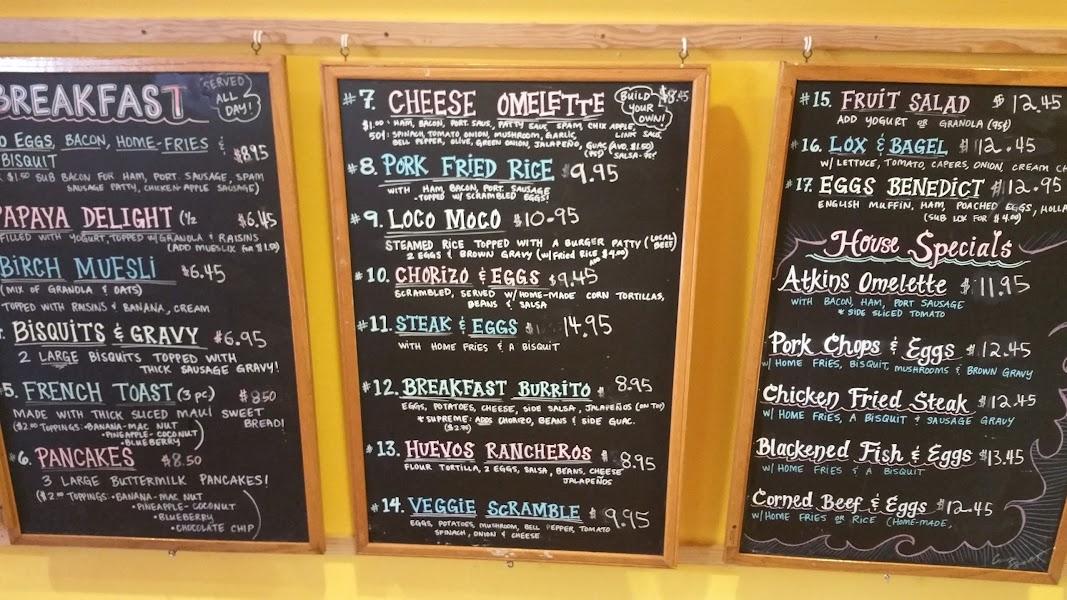 BREAKFAST
SERVED
ALL
DAY!
EGGS, BACON, HOME-FRIES &
BISQUIT $8.95
$1.50 SUB BACON FOR HAM, PORT. SAUSAGE, SPAM
SAUSAGE PATTY, CHICKEN-APPLE SAUSAGE)
PAPAYA DELIGHT (1/2 $6.45
FILLED WITH YOGURT, TOPPED W/GRANOLA & RAISINS
(ADD MUESLIX for $1.50)
BIRCH MUESLI $6.45
(MIX OF GRANOLA & OATS)
TOPPED WITH RAISINS & BANANA, CREAM
BISQUITS & GRAVY $6.95
2 LARGE BISQUITS TOPPED WITH
THICK SAUSAGE GRAVY!
5. FRENCH TOAST (3 pc) $8.50
MADE WITH THICK SLICED MAUI SWEET
BREAD!
($2.00 TOPPINGS: •BANANA-MAC NUT
•PINEAPPLE-COCONUT
•BLUEBERRY)
#6. PANCAKES $8.50
3 LARGE BUTTERMILK PANCAKES!
($2.00 TOPPINGS: •BANANA-MAC NUT
•PINEAPPLE-COCONUT
•BLUEBERRY
•CHOCOLATE CHIP)
#7. CHEESE OMELETTE $8.45
BUILD
YOUR
OWN!
$1.00: HAM, BACON, PORT. SAUS., PATTY SAUS, SPAM, CHIX APPLE,
LINK SAUS
50¢: SPINACH, TOMATO, ONION, MUSHROOM, GARLIC,
BELL PEPPER, OLIVE, GREEN ONION, JALAPEÑO, GUAC (AVO. $1.50)
SALSA
#8. PORK FRIED RICE $9.95
WITH HAM, BACON, PORT. SAUSAGE
-TOPPED W/ SCRAMBLED EGGS!
#9. LOCO MOCO $10.95
STEAMED RICE TOPPED WITH A BURGER PATTY (LOCAL BEEF)
2 EGGS & BROWN GRAVY (w/Fried RICE ADD $4.00)
#10. CHORIZO & EGGS $9.45
SCRAMBLED, SERVED W/HOME-MADE CORN TORTILLAS,
BEANS & SALSA
#11. STEAK & EGGS $ 14.95
WITH HOME FRIES & A BISQUIT
#12. BREAKFAST BURRITO $ 8.95
EGGS, POTATOES, CHEESE, SIDE SALSA, JALAPEÑOS (ON TOP)
*SUPREME: ADDS CHORIZO, BEANS & SIDE GUAC.
($2.75)
#13. HUEVOS RANCHEROS $ 8.95
FLOUR TORTILLA, 2 EGGS, SALSA, BEANS, CHEESE
JALAPEÑOS
#14. VEGGIE SCRAMBLE $ 9.95
EGGS, POTATOES, MUSHROOM, BELL PEPPER, TOMATO
SPINACH, ONION & CHEESE
#15. FRUIT SALAD $ 12.45
ADD YOGURT OR GRANOLA (95¢)
#16. LOX & BAGEL $ 12.45
W/ LETTUCE, TOMATO, CAPERS, ONION, CREAM CH
#17. EGGS BENEDICT $12.95
ENGLISH MUFFIN, HAM, POACHED EGGS, HOLLA
(SUB LOX FOR $4.00)
House Specials
Atkins Omelette $11.95
WITH BACON, HAM, PORT SAUSAGE
* SIDE SLICED TOMATO
Pork Chops & Eggs $12.45
W/ HOME FRIES, BISQUIT, MUSHROOMS & BROWN GRAVY
Chicken Fried Steak $12.45
W/ HOME FRIES, A BISQUIT & SAUSAGE GRAVY
Blackened Fish & Eggs $13.45
W/ HOME FRIES & A BISQUIT
Corned Beef & Eggs $12.45
W/HOME FRIES OR RICE (HOME-MADE,